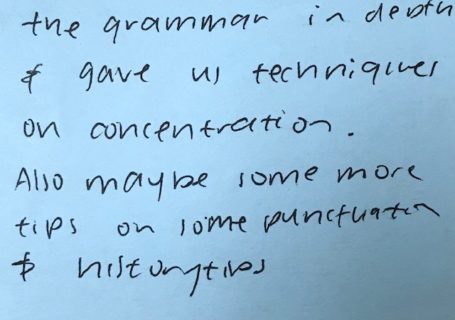 the grammar in depth
& gave us techniques
on concentration.
Also maybe some more
tips on some punctuation
& history tips